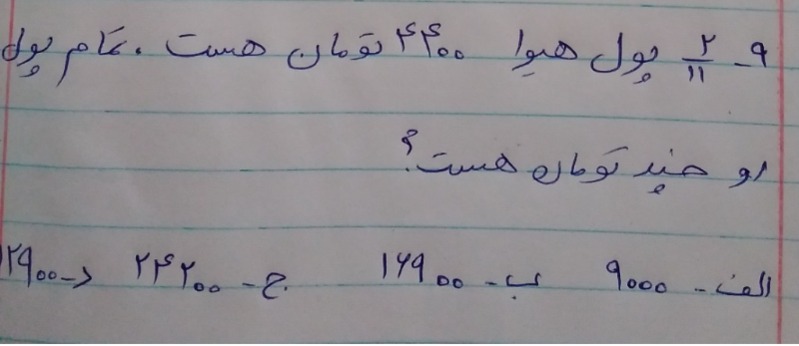 ۹- ۲/۱۱ پول هیوا ۴۴۰۰ تومان هست . تمام پول
او چند تومان هست؟
الف- ۹۰۰۰ ب- ۱۶۹۰۰ ج- ۲۴۲۰۰ د- ۲۹۰۰